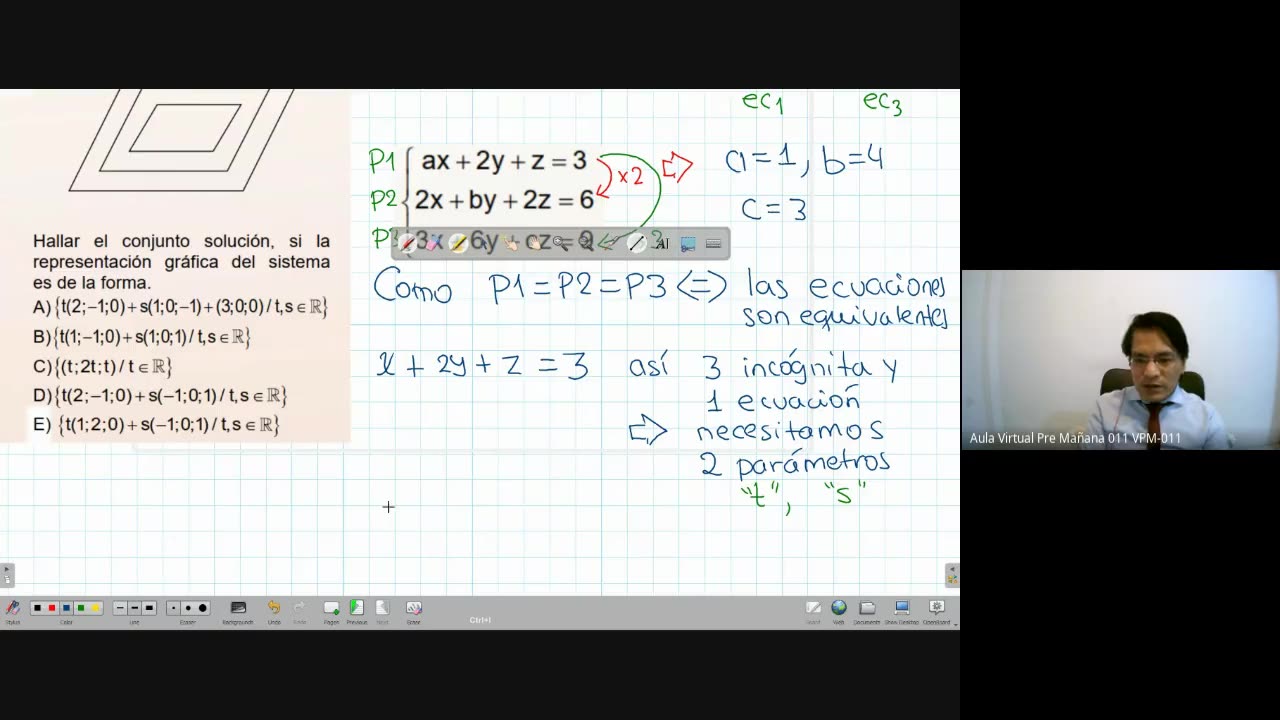 ec1 ec3
P1 ax + 2y + z = 3 x2 ⇒ a=1, b=4
P2 2x + by + 2z = 6 c = 3
3x + 6y + cz = 9
Hallar el conjunto solución, si la
representación gráfica del sistema
es de la forma.
A) {t(2;−1;0)+s(1;0;−1)+(3;0;0) / t,s∈ℝ}
B) {t(1;−1;0)+s(1;0;1) / t,s∈ℝ}
C) {(t;2t;t) / t∈ℝ}
D) {t(2;−1;0)+s(−1;0;1) / t,s∈ℝ}
E) {t(1;2;0)+s(−1;0;1) / t,s∈ℝ}
Como P1=P2=P3 <=> las ecuaciones
son equivalentes
x + 2y + z = 3 así 3 incógnita y
1 ecuación
⇒ necesitamos
2 parámetros
"t", "s"
Aula Virtual Pre Mañana 011 VPM-011
Stylus Color Line Eraser Backgrounds Undo Pages Previous Next Erase Ctrl+I Board Web Documents Show Desktop OpenBoard